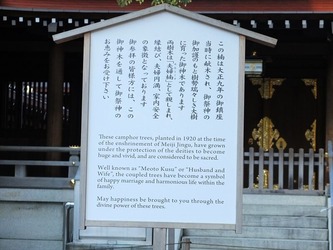 この楠は大正九年の御鎮座
当時に献木され、御祭神の
御加護のもと樹勢瑞々しく大樹
に育った御神木であります
両樹木は「夫婦楠」として親しまれ、
縁結び、夫婦円満、家内安全
の象徴となっております
御参拝の皆様方には、この
御神木を通して御祭神の
お恵みをお受け下さい
These camphor trees, planted in 1920 at the time
of the enshrinement of Meiji Jingu, have grown
under the protection of the deities to become
huge and vivid, and are considered to be sacred.
Well known as "Meoto Kusu" or "Husband and
Wife", the coupled trees have become a symbol
of happy marriage and harmonious life within the
family.
May happiness be brought to you through the
divine power of these trees.